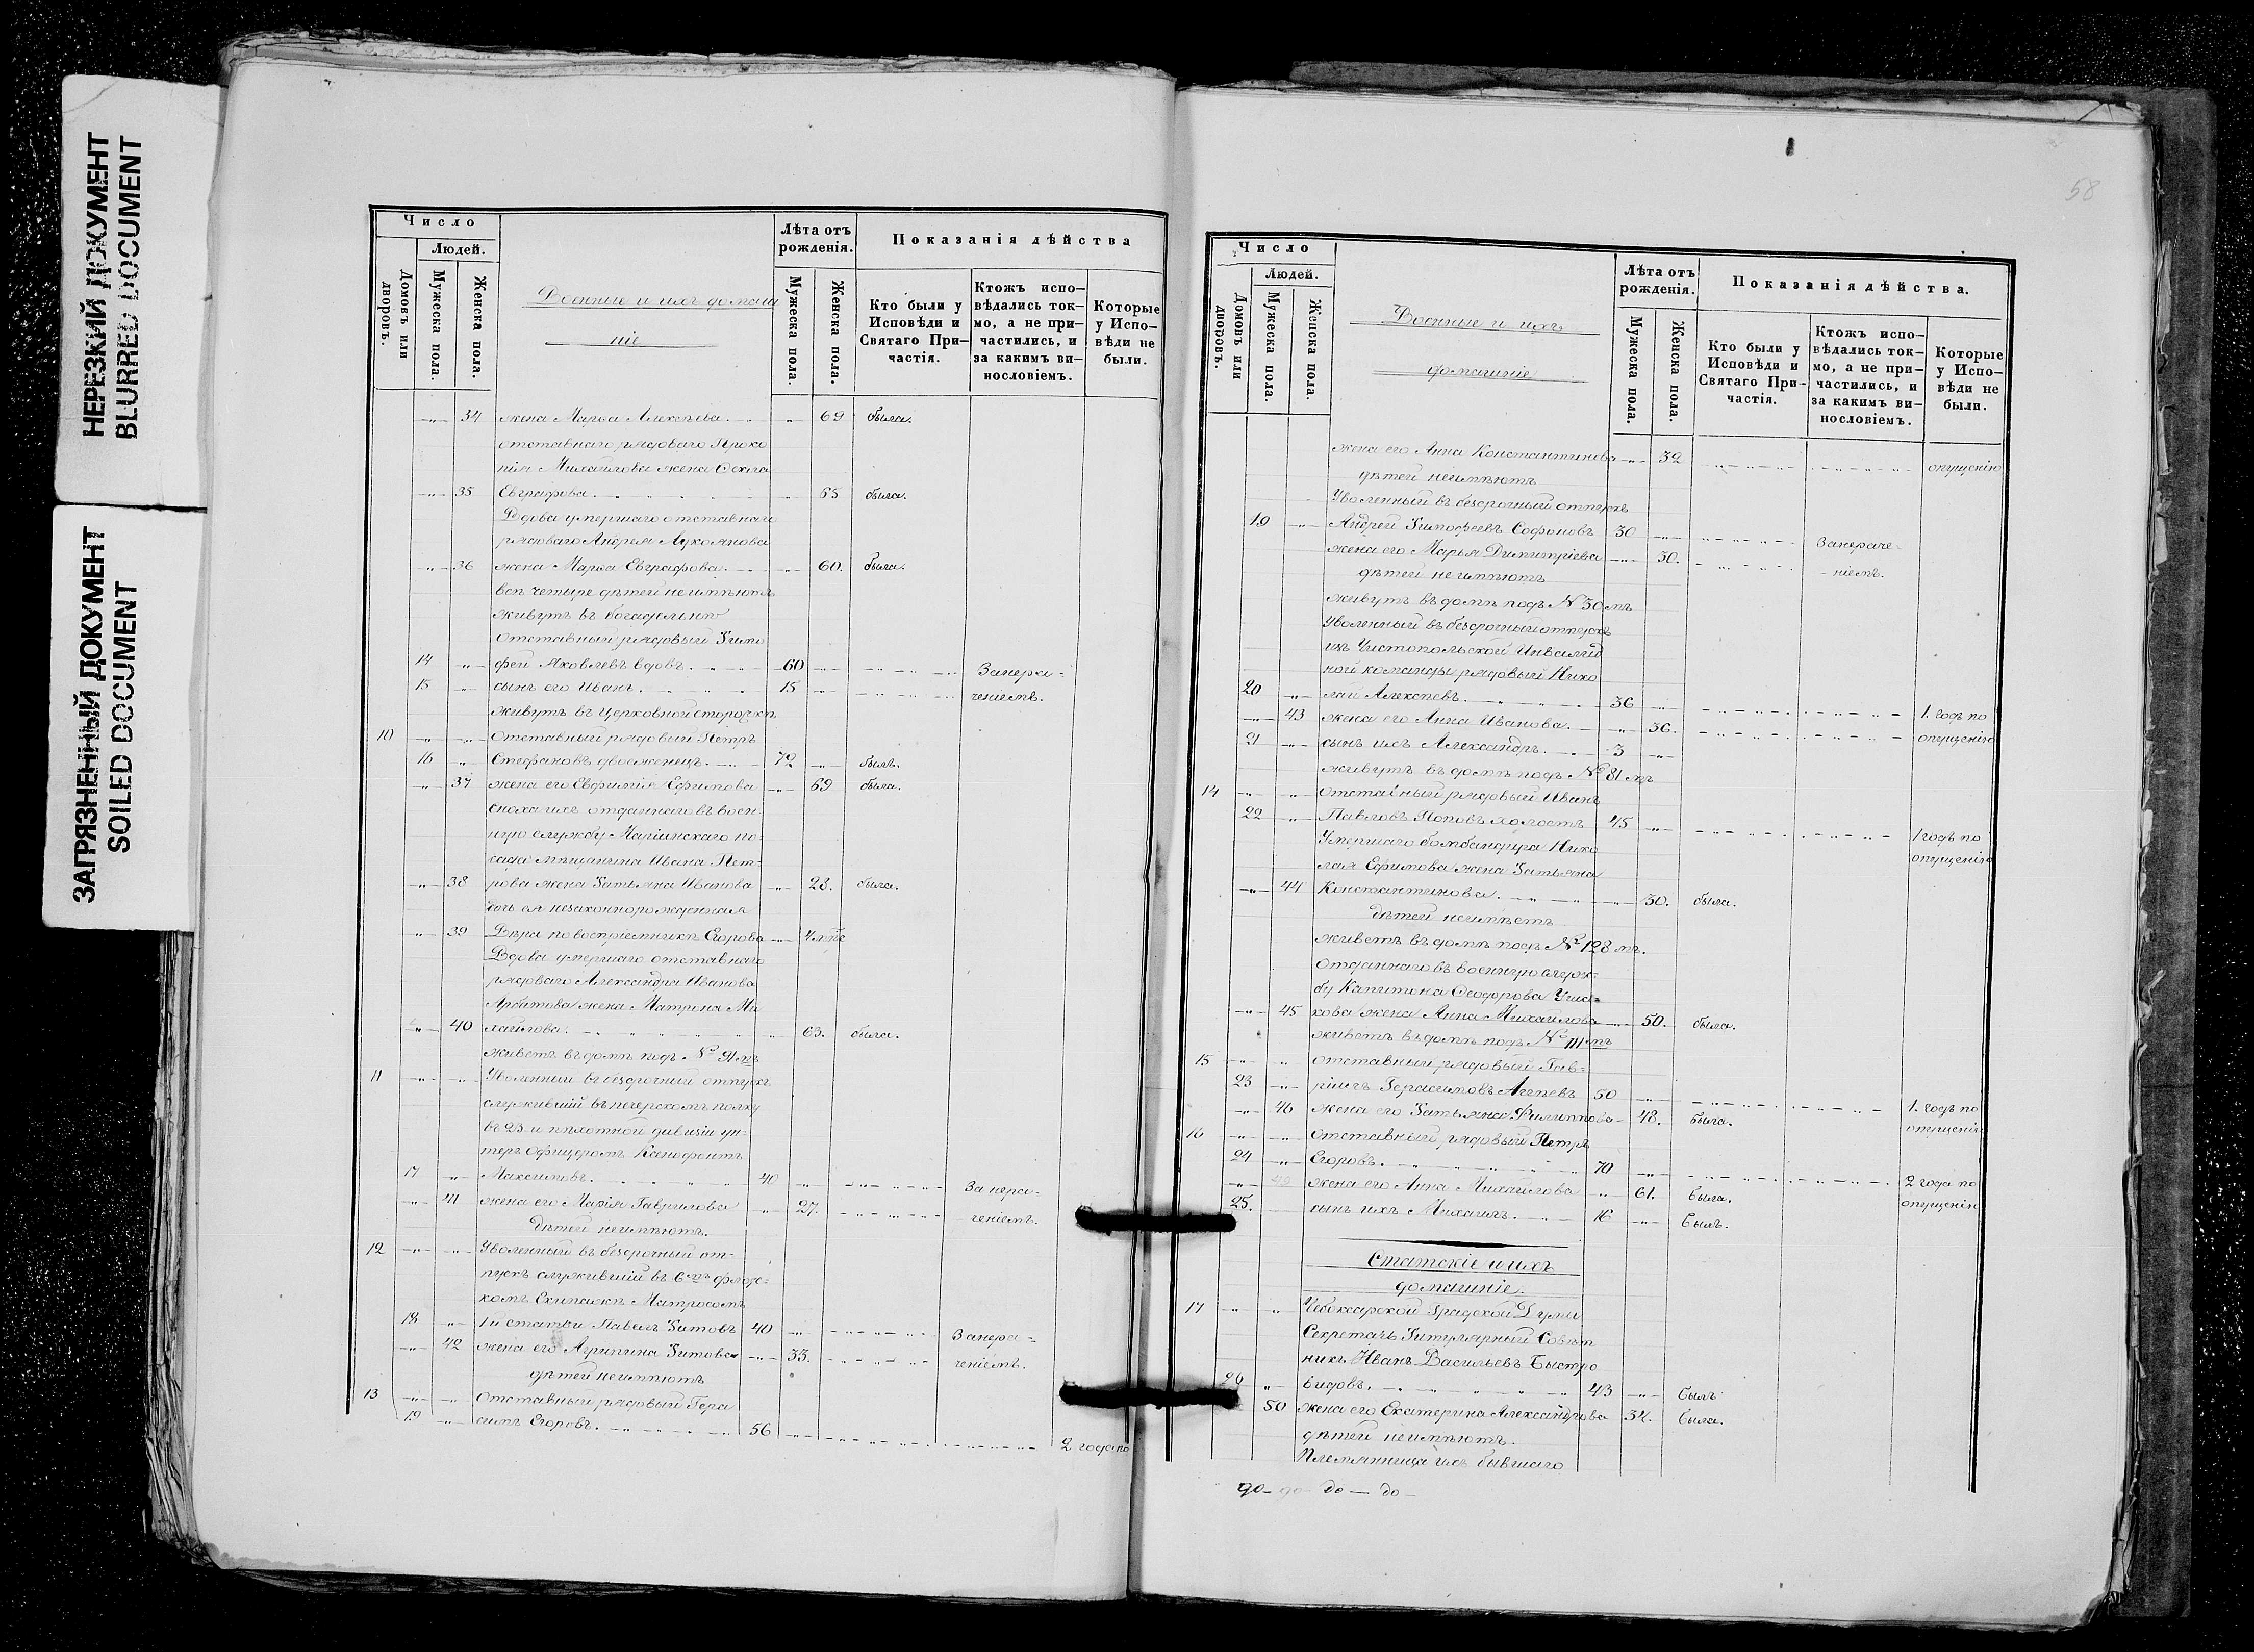 НЕРЕЗКИЙ ДОКУМЕНТ
BLURRED DOCUMENT
ЗАГРЯЗНЕННЫЙ ДОКУМЕНТ
SOILED DOCUMENT
Число
Людей.
Домовъ или дворовъ.
Мужеска пола.
Женска пола.
Военные и ихъ домаш
ніе
Лѣта отъ рожденія.
Мужеска пола.
Женска пола.
Показанія дѣйства
Кто были у Исповѣди и Святаго При-частія.
Ктожъ испо-вѣдались ток-мо, а не при-частились, и за какимъ ви-нословіемъ.
Которые у Испо-вѣди не были.
-„- 34 жена Марѳа Алексѣева. „ 69 была.
отставнаго рядоваго Проко
пія Михаилова жена Ѳекла
-„- 35 Евграфова. „ 65 была.
Вдова умершаго отставнаго
рядоваго Андрея Лукоянова
-„- 36 жена Марѳа Евграфова. „ 60. была.
всѣ четыре дѣтей неимѣютъ
живутъ въ богадельнѣ
Отставный рядовый Тимо
14 -„- фей Яковлевъ вдовъ. 60 -„- Занера-
15 -„- сынъ его Иванъ. 15 -„- ченіемъ.
живутъ въ Церковной сторожкѣ
10 -„- -„- Отставный рядовый Петръ
16 -„- Стефановъ двоеженецъ. 72 -„- былъ.
-„- 37 жена его Евфимія Ефимова -„- 69 была.
сноха ихъ отданнаго въ воен-
ную службу Маріинскаго по-
сада мѣщанина Ивана Пет-
-„- 38 рова жена Татьяна Иванова -„- 28. была.
дочь ея незаконнорожденная
-„- 39 Вѣра по воспріемникѣ Егорова -„-
Вдова умершаго отставнаго
рядоваго Александра Иванова
Арбатова жена Матрона Ми
-„- 40 хайлова. „ 63. была.
живетъ въ домѣ подъ № 91мъ
11 -„- -„- Уволенный въ безсрочный отпускъ
служившій въ печерскомъ полку
въ 23 й пѣхотной дивизіи ун-
теръ офицеромъ Ксенофонтъ
17 „ Максимовъ. 40 -„- Занера-
-„- 41 жена его Марія Гаврилова -„- 27. ченіемъ.
Дѣтей неимѣютъ.
12 -„- -„- Уволенный въ безсрочный от-
пускъ служившій въ 6мъ флотс-
комъ Екипажѣ Матросомъ
18 -„- 1й статьи Павелъ Титовъ 40 -„- Занера-
-„- 42 жена его Агрипина Титова -„- 33. ченіемъ.
дѣтей неимѣютъ
13 -„- -„- Отставный рядовый Гера
19 -„- симъ Егоровъ. 56 -„- 2 года по
58
Число
Людей.
Домовъ или дворовъ.
Мужеска пола.
Женска пола.
Военные и ихъ
домашніе
Лѣта отъ рожденія.
Мужеска пола.
Женска пола.
Показанія дѣйства.
Кто были у Исповѣди и Святаго При-частія.
Ктожъ испо-вѣдались ток-мо, а не при-частились, и за какимъ ви-нословіемъ.
Которые у Испо-вѣди не были.
жена его Анна Константинова -„- 32 опущенію
дѣтей неимѣютъ
Уволенный въ безсрочный отпускъ
19 -„- Андрей Тимофеевъ Софоновъ 30 -„- Занераче-
жена его Марья Димитріева -„- 30. -ніемъ.
дѣтей не имѣютъ
живутъ въ домѣ подъ № 30мъ
Уволенный въ безсрочный отпускъ
изъ Чистопольской Инвалид
ной команды рядовый Нико
20 -„- лай Алексѣевъ. 36 „ 1. годъ по
-„- 43 жена его Анна Иванова. „ 36. опущенію
21 -„- сынъ ихъ Александръ. 3 -„-
живутъ въ домѣ подъ № 81мъ
14 -„- „ Отставный рядовый Иванъ
22 „ Павловъ Поповъ холостъ 45 -„- 1 годъ по
Умершаго бомбандира Нико опущенію
лая Ефимова жена Татьяна
-„- 44 Константинова. -„- 30. была.
дѣтей неимѣетъ
живетъ въ домѣ подъ № 128мъ.
Отданнаго въ военную служ-
бу Капитона Ѳеодорова
-„- 45 кова жена Анна Михайлова -„- 50. была.
живетъ въ домѣ подъ № 111мъ
15 -„- „ отставный рядовый Гав-
23 -„- ріилъ Герасимовъ 50 -„- 1. годъ по
-„- 46 жена его Татьяна Филиппова - 48. была. опущенію
16 -„- „ Отставный рядовый Петръ
24 -„- Егоровъ. 70 -„- 2 года по
-„- жена его Анна Михайлова „ 61. была. опущенію
25. сынъ ихъ Михаилъ. 16 -„- былъ.
Статскіе и ихъ
домашніе.
17 „ „ Чебоксарской Градской Думы
Секретарь Титулярный Совѣт
никъ Иванъ Васильевъ Быстро
26 „ видовъ. 43 -„- былъ
50 жена его Екатерина Александрова 34. была.
дѣтей неимѣютъ.
Племянница ихъ бывшаго
до- до- до — до -